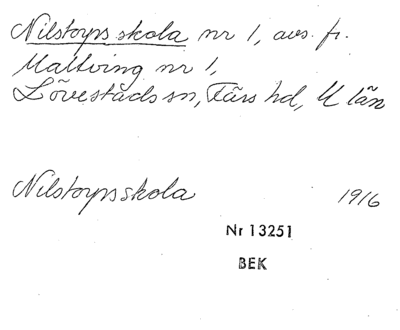 Nilstorps skola nr 1, avs. fr.
Maltving nr 1,
Lövestads sn, Färs hd, M län
Nilstorpsskola 1916
Nr 13251
BEK